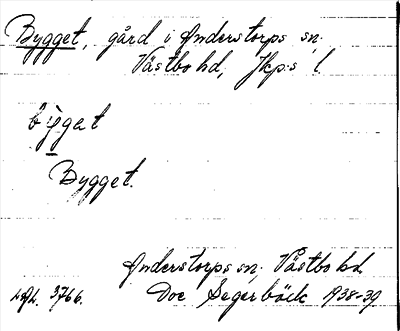 Bygget, gård i Anderstorps sn.
Västbo hd, Jkp:s l.
býgat
Bygget.
Anderstorps sn, Västbo hd
Doc Segerbäck 1938-39.
3766.